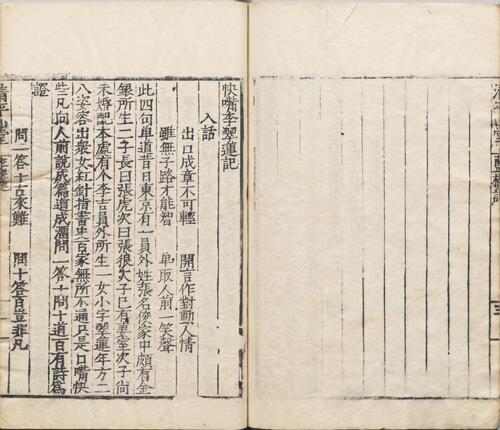 快嘴李翠蓮記
入話
出口成章不可輕　開言作對動人情
雖無子路才能智　单取人前一笑聲
此四句单道昔日東京有一員外姓張名俊家中頗有金
銀所生二子長曰張虎次曰張狼大子已有妻室次子尚
未婚配本處有个李吉員外所生一女小字翠蓮年方二
八姿容出衆女紅針指書史百家無所不通只是口嘴快
些凡向人前説成篇道成溜問一答十問十道百有詩爲
證
問一答十古來難　問十答百豈非凡
清平山堂